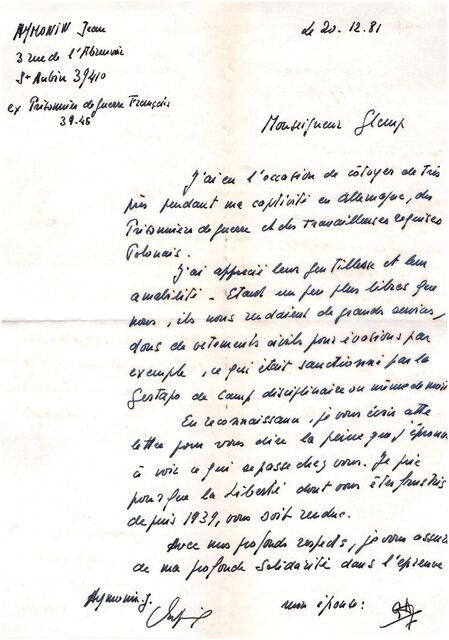 AYMONIN Jean
3 rue de l'Abreuvoir
St Aubin 39410
ex Prisonnier de guerre Français
39.45
le 20.12.81
Monseigneur Glemp
J'ai eu l'occasion de côtoyer de très
près pendant ma captivité en Allemagne, des
Prisonniers de guerre et des travailleuses requises
Polonais.
J'ai apprécié leur gentillesse et leur
amabilité - Etant un peu plus libres que
nous, ils nous rendaient de grands services,
dons de vetements civils pour évasions par
exemple, ce qui était sanctionné par la
Gestapo de Camp disciplinaire ou même de mort
En reconnaissance, je vous écris cette
lettre pour vous dire la peine que j'éprouve
à voir ce qui se passe chez vous. Je prie
pour que la Liberté dont vous êtes frustrés
depuis 1939, vous soit rendue.
Avec mes profonds respects, je vous assure
de ma profonde solidarité dans l'épreuve
Aymonin J.
mon épouse: